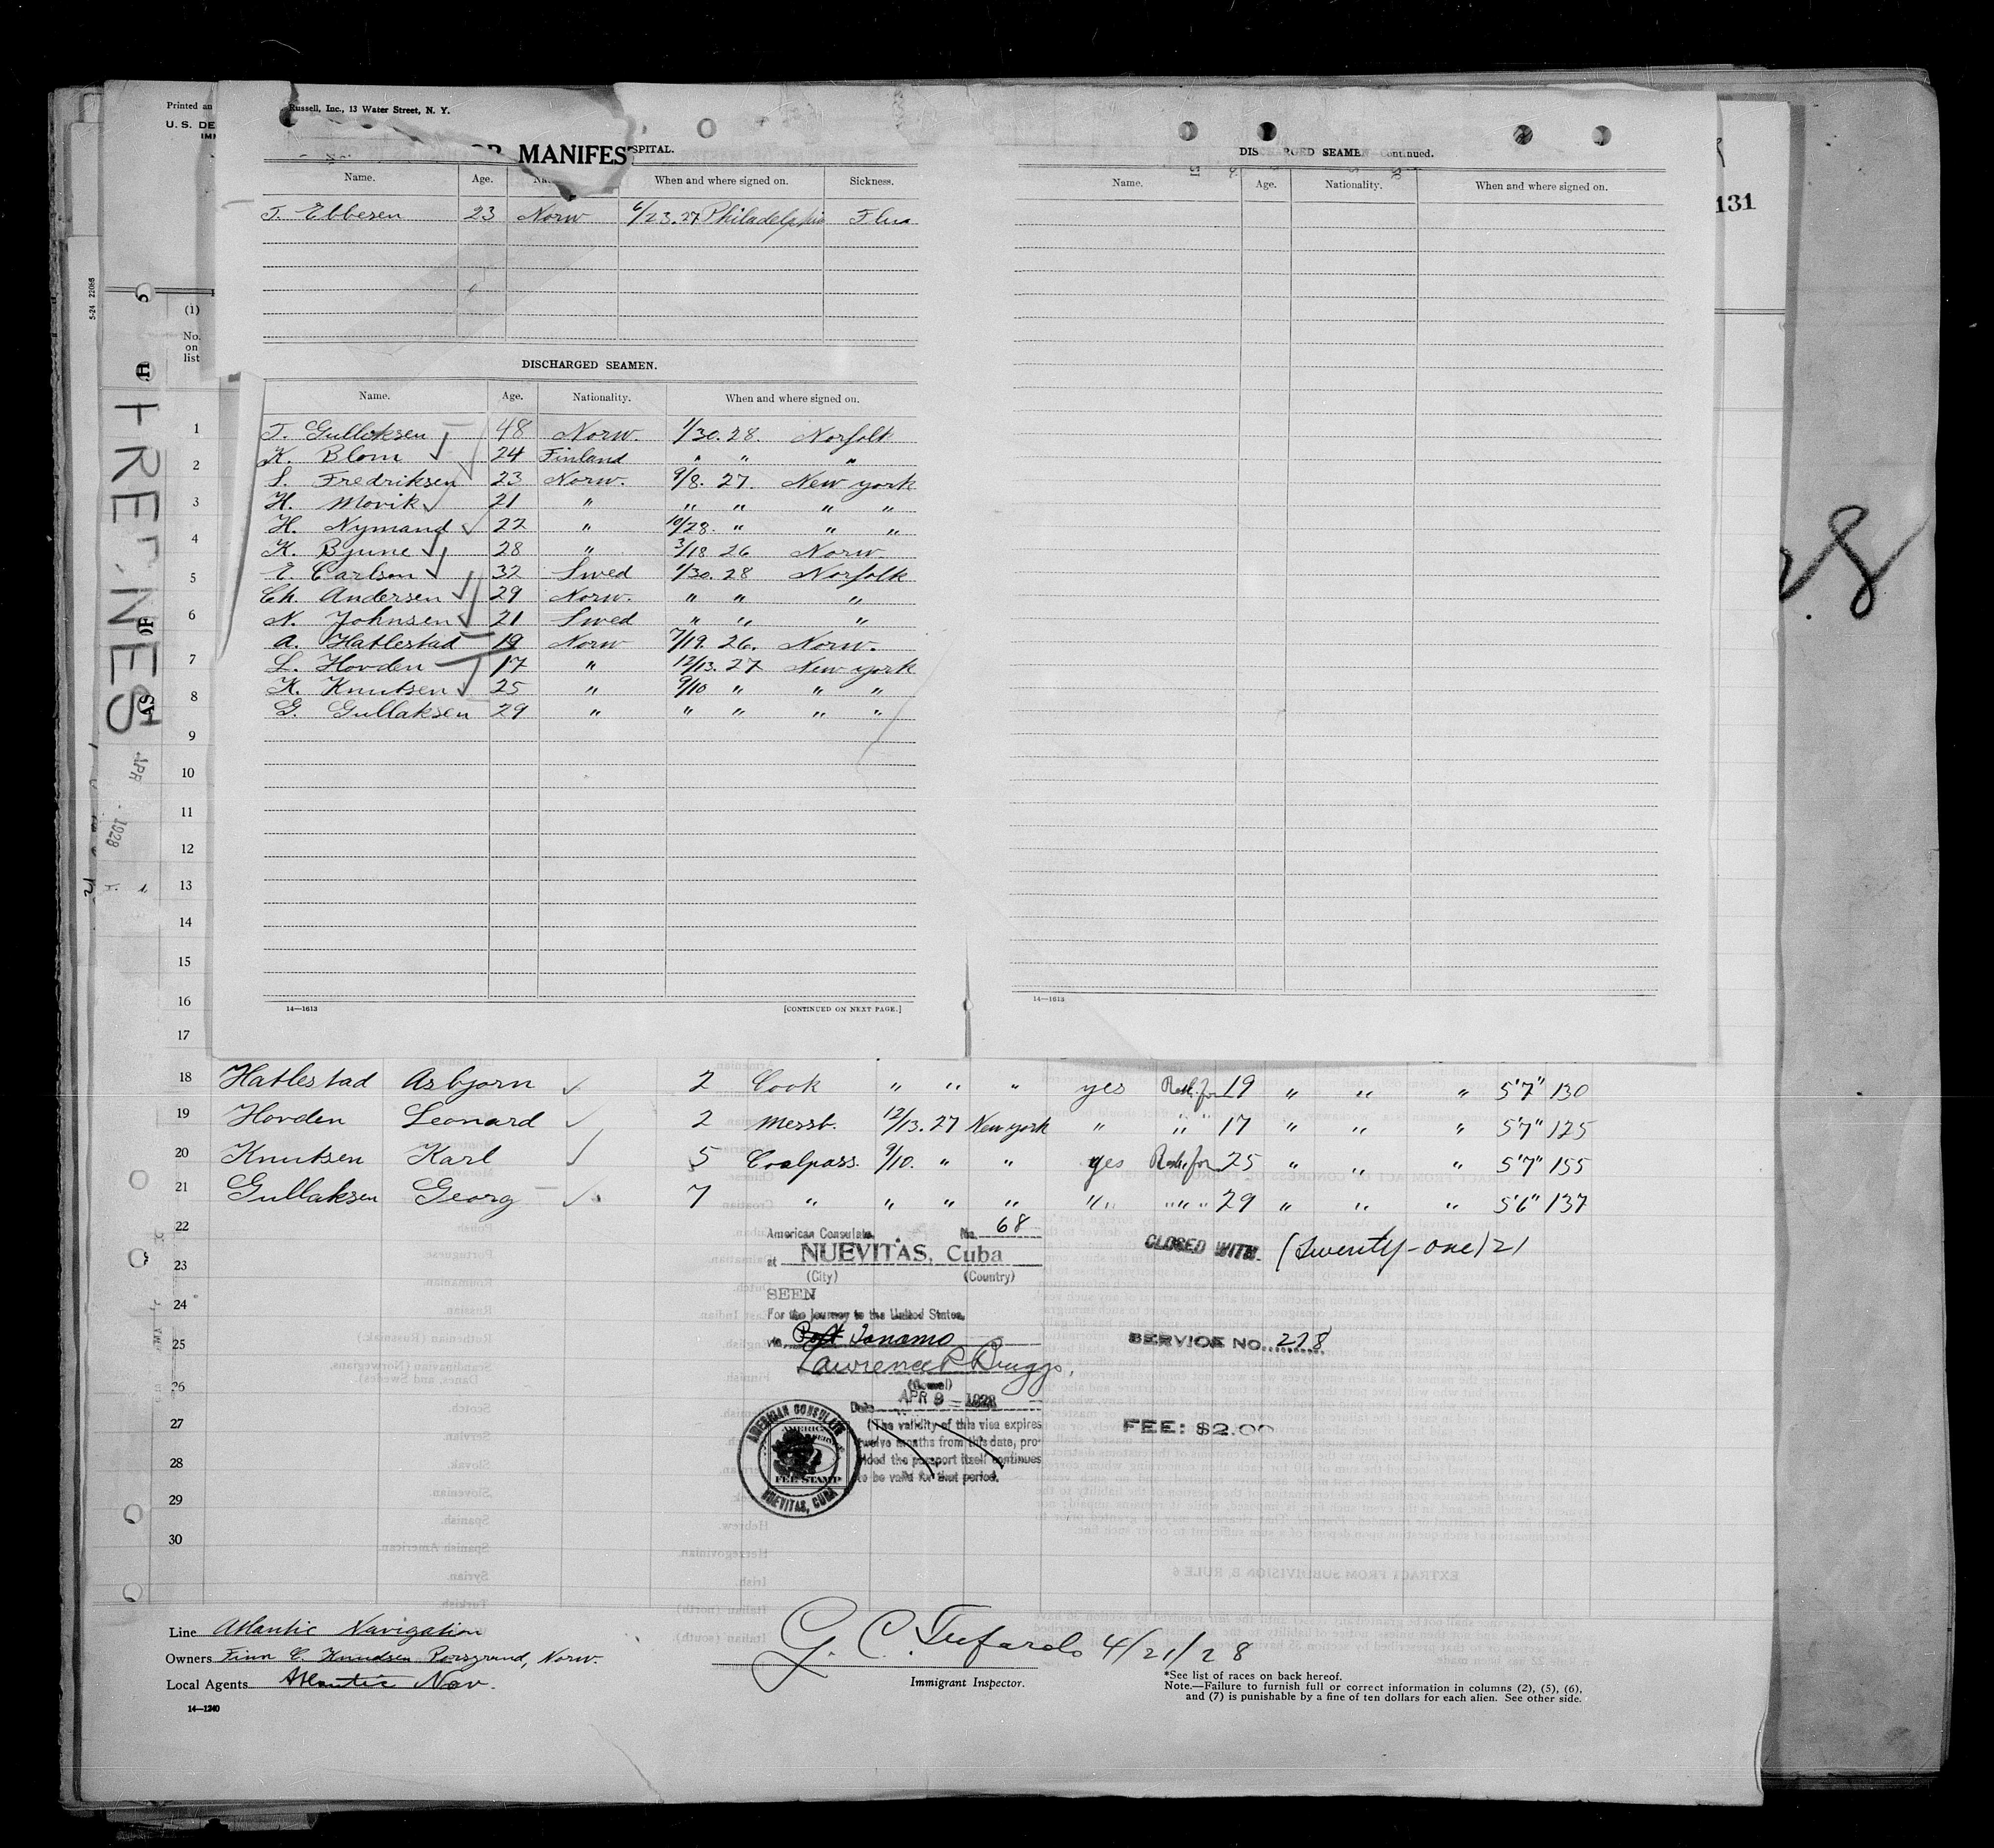 Printed an
Russell, Inc., 13 Water Street, N. Y.
U. S. DE
MANIFES
SPITAL.
Name. Age. When and where signed on. Sickness.
T. Ebbesen 23 Norw 6/23.27 Philadelphia Flu
DISCHARGED SEAMEN.
Name. Age. Nationality. When and where signed on.
T. Gullaksen 48 Norw. 1/30.28. Norfolk
K. Blom 24 Finland " " "
S. Fredriksen 23 Norw. 9/8. 27. New york
H. Movik 21 " " " " "
H. Nymand 22 " 10/28. " " "
K. Bjune 28 " 3/18 26 Norw.
E. Carlson 32 Swed 1/30. 28 Norfolk
Ch. Andersen 29 Norw. " " "
N. Johnsen 21 Swed " " "
A. Hatlestad 19 Norw 7/19. 26. Norw.
L. Hovden 17 " 12/13. 27 New york
K. Knutsen 25 " 9/10 " " "
G. Gullaksen 29 " " " " "
14—1613 [CONTINUED ON NEXT PAGE.]
DISCHARGED SEAMEN continued.
Name. Age. Nationality. When and where signed on.
14—1613
131
5-24 22085
(1)
No.
on
list
1
2
3
4
5
6
7
8
9
10
11
12
13
14
15
16
17
APR
1928
18 Hatlestad Asbjorn 2 Cook " " " yes 19 " " " 5'7" 130
19 Hovden Leonard 2 Messb. 12/13. 27 New york " " " 17 " " " 5'7" 125
20 Knutsen Karl 5 Coalpass. 9/10. " " yes 25 " " " 5'7" 155
21 Gullaksen Georg 7 " " " " " " " " " 29 " " " 5'6" 137
22
23
24
25
26
27
28
29
30
American Consulate, No. 68
at NUEVITAS, Cuba
(City) (Country)
SEEN
For the journey to the United States,
via Port Tanamo
Lawrence P. Briggs.
(Consul)
Date APR 9 - 1928
(The validity of this visa expires
twelve months from this date, pro-
vided the passport itself continues
to be valid for that period.
AMERICAN CONSULATE
FEE STAMP
NUEVITAS, CUBA
CLOSED WITH (Twenty-one) 21
SERVICE NO. 278
FEE: $2.00
Line Atlantic Navigation
Owners Finn C. Knudsen Porsgrund, Norw.
Local Agents Atlantic Nav.
14—1240
G. C. Tufaro 4/21/28
Immigrant Inspector.
*See list of races on back hereof.
Note.—Failure to furnish full or correct information in columns (2), (5), (6),
and (7) is punishable by a fine of ten dollars for each alien. See other side.